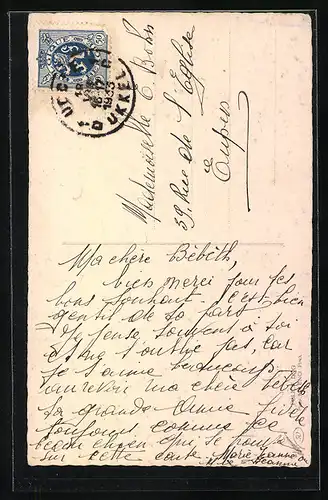 UCCLE
UKKEL
1933
Mademoiselle C. Bom
59, Rue de l'Eglise
à
Ma chère Bébeth,
bien merci pour tes
bons souhaits c'est bien
gentil de ta part
J'y pense souvent à toi
et ne t'oublie pas, car
je t'aime beaucoup.
aurevoir ma chère Bébeth
Ta grande Amie fidèle
toujours comme ce
beau chien qui se trouve
sur cette carte Marie-Jeanne